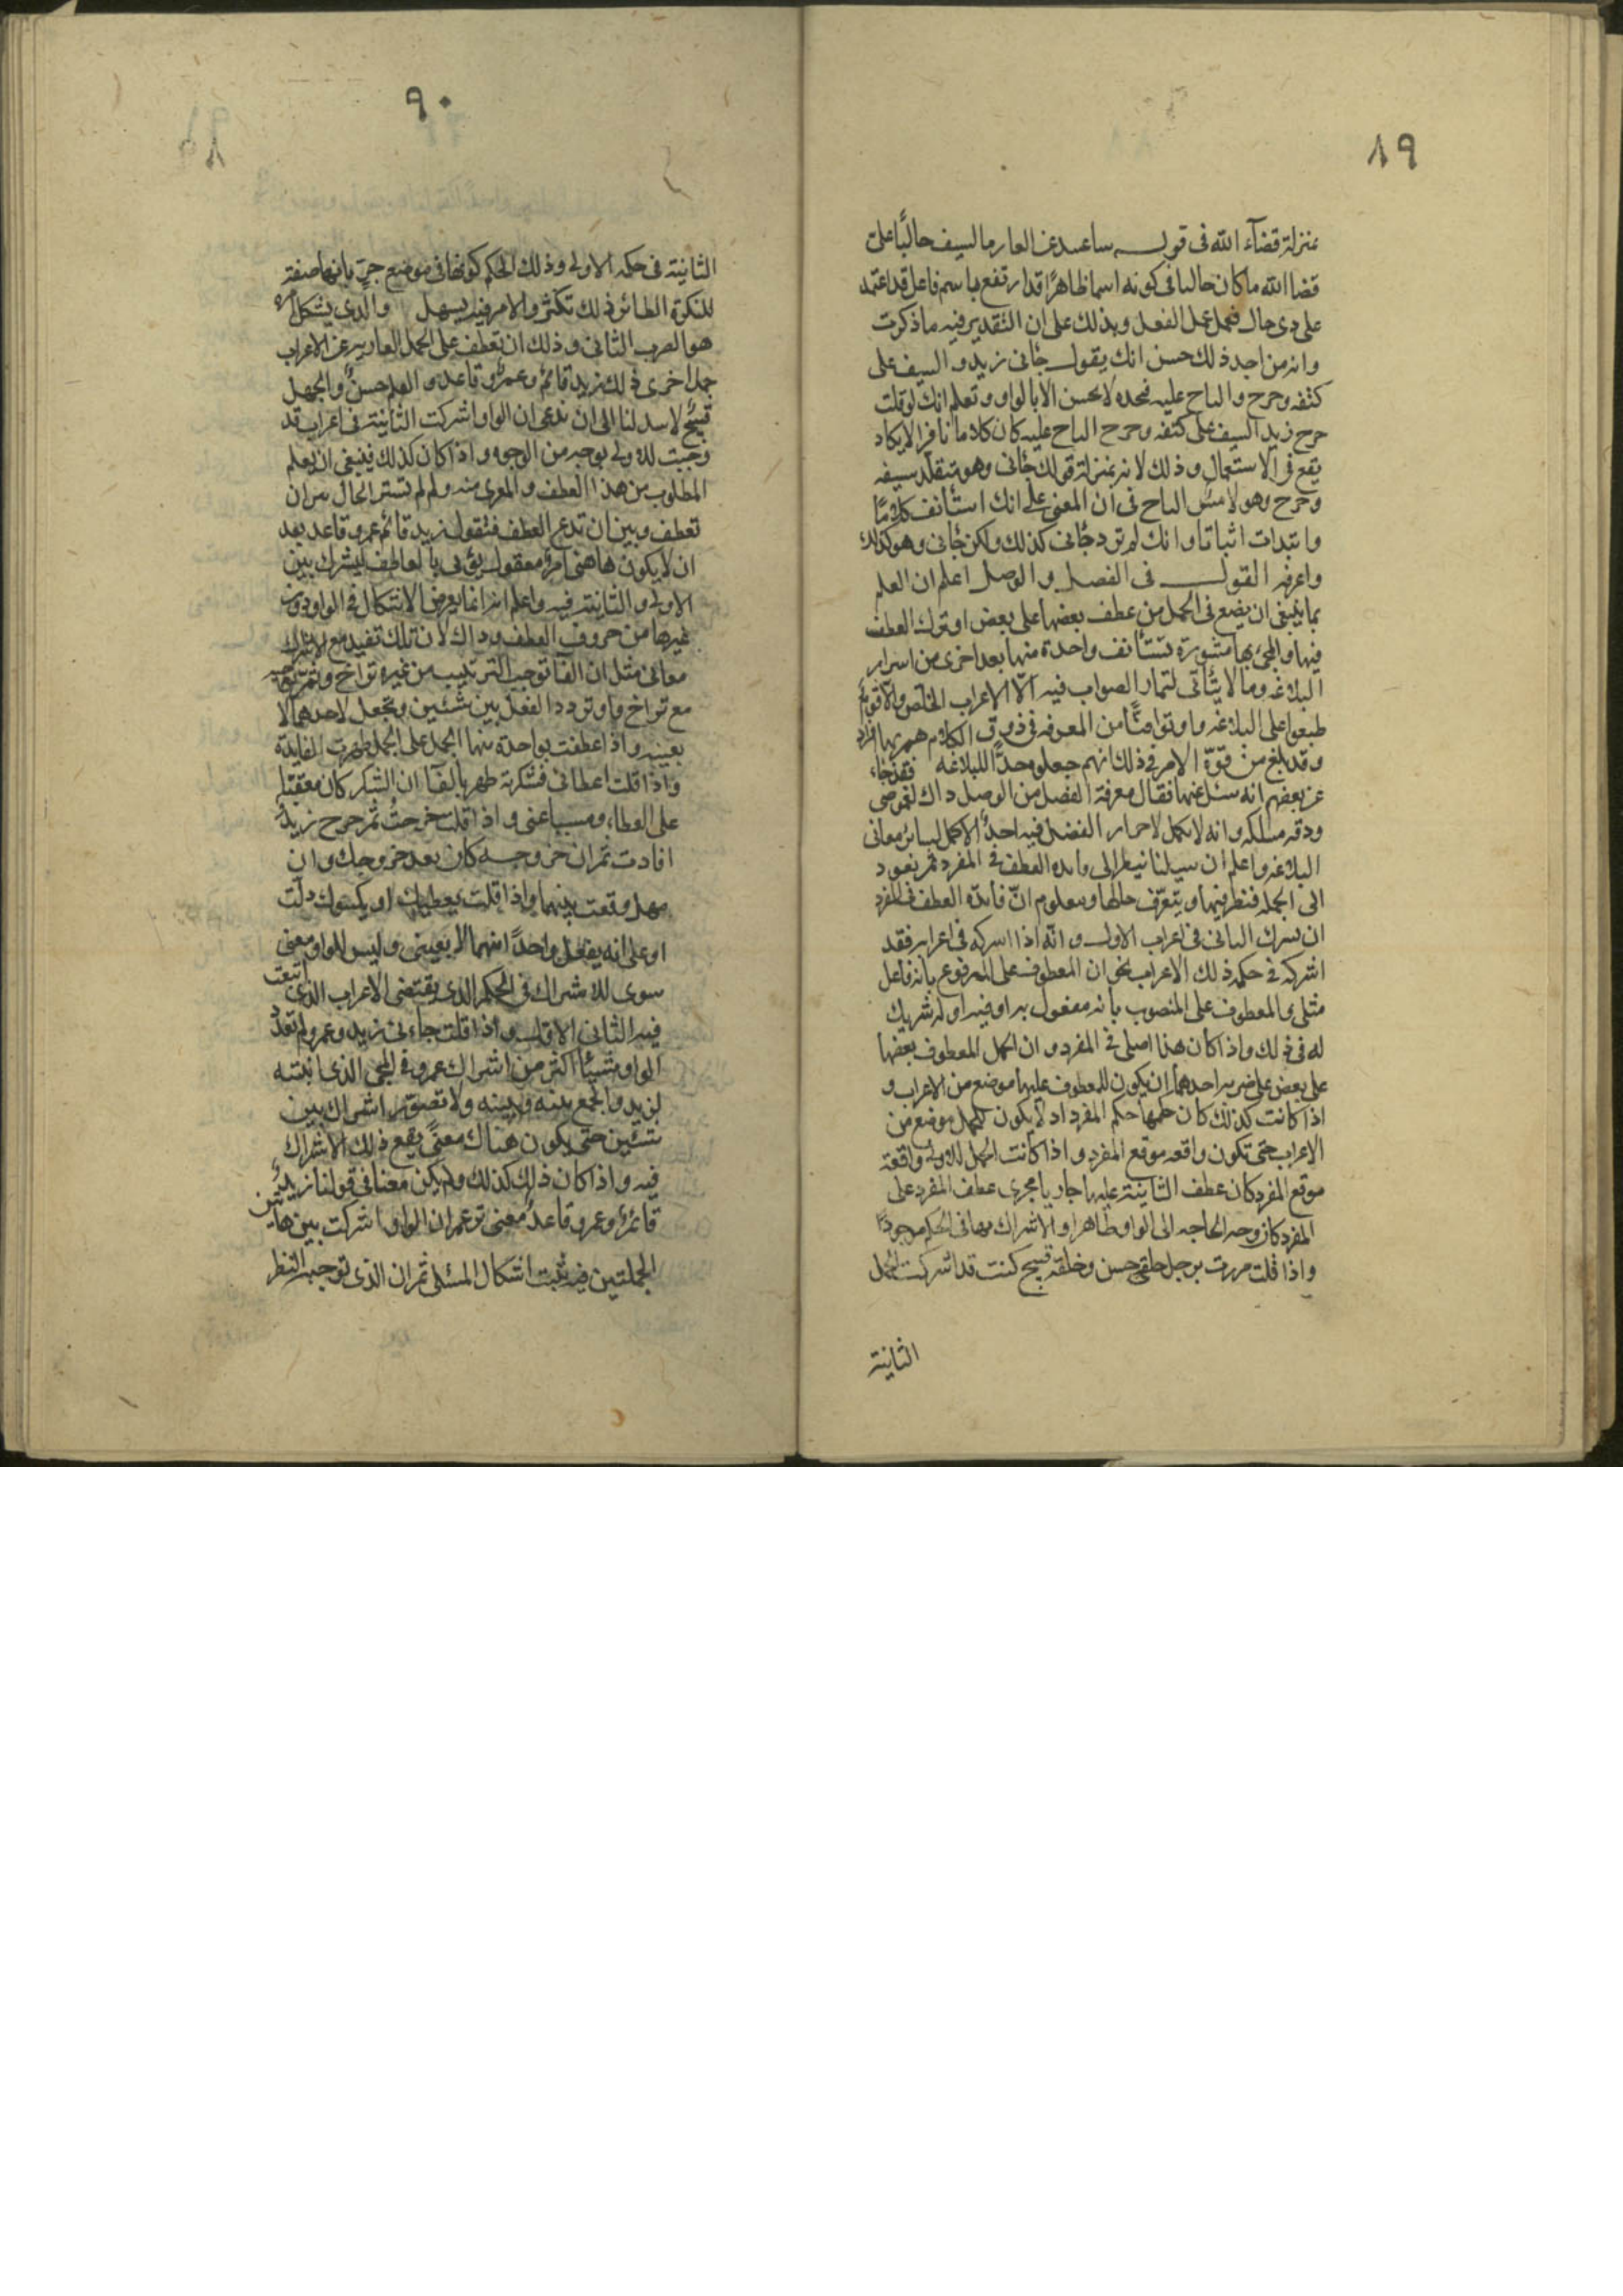 ٨٩
بمنزلة قضآء الله فى قوله ساغسل عنى العار بالسيف جالبًا على
قضا الله ما كان جالبا فى كونه اسما ظاهرًا قد ارتفع باسم فاعل قد اعتمد
على ذى حال فعمل عمل الفعل ويدلك على ان التقدير فيه ما ذكرت
وانه من اجل ذلك حسن انك تقول جانى زيد والسيف على
كتفه وخرج والتاج عليه فتجده لا يحسن الا بالواو وتعلم انك لو قلت
خرج زيد السيف على كتفه وخرج التاج عليه كان كلاما نافرا لا يكاد
يقع فى الاستعمال وذلك لانه بمنزلة قولك جانى وهو متقلد سيفه
وخرج وهو لابس التاج فى ان المعنى على انك استأنف كلامًا
وابتدات اثباتا وانك لم ترد جانى كذلك ولكن جانى وهو كذلك
واعرفه القول فى الفصل والوصل اعلم ان العلم
بما ينبغى ان يضع فى الجمل من عطف بعضها على بعض او ترك العطف
فيها والمجئ بها منثورة تستأنف واحدة منها بعد اخرى من اسرار
البلاغه ومما لا يتأتى لتمام الصواب فيه الّا الاعراب الخلّص والاقوام
طبعوا على البلاغه واوتوا فنًّا من المعرفه فى ذوق الكلام هم بها افراد
وقد بلغ من قوّة الامر فى ذلك انهم جعلوه حدًّا للبلاغه فقد جاء
عن بعضهم انه سئل عنها فقال معرفة الفصل من الوصل ذاك لغموض
ودقه مسلكه وانه لا يكمل لاحراز الفضل فيه احدٌ الا كمل لسائر معانى
البلاغه واعلم ان سبيلنا ننظر الى فايده العطف فى المفرد ثم نعود
الى الجمله فننظر فيها ونتعرّف حالها ومعلوم انّ فايدّه العطف فى المفرد
ان يشرك الثانى فى اعراب الاول وانّه اذا اشركه فى اعرابه فقد
اشركه فى حكم ذلك الاعراب نحو ان المعطوف على المرفوع بانه فاعل
مثله والمعطوف على المنصوب بانه مفعول به او فيه او له شريك
له فى ذلك واذا كان هذا اصله فى المفرد وان الجمل المعطوف بعضها
على بعض على ضربين احدهما ان يكون للمعطوف عليها موضع من الاعراب و
اذا كانت كذلك كان حكمها حكم المفرد اذ لا يكون للجمل موضع من
الاعراب حتى تكون واقعه موقع المفرد واذا كانت الجمل الاولى واقعة
موقع المفرد كان عطف الثانية عليها جاريا مجرى عطف المفرد على
المفرد كان وجه الحاجه الى الواو ظاهرا والاشراك بها فى الحكم موجودًا
واذا قلت مررت برجل خلقه حسن وخلقه قبيح كنت قد اشركت الجمل
الثانية
٩٠
الثانية فى حكم الاولى وذلك الحكم كونها فى موضع جرّ بانها صفة
للنكرة الطائر ذلك تكثر والامر فيه يسهل والّذى يشكل امره
هو الضرب الثانى وذلك ان تعطف على الجمل العارية عن الاعراب
جملة اخرى كذلك زيد قائم وعمرٌو قاعد والعلم حسنٌ والجهل
قبيحٌ لا سبيل لنا الى ان ندعى ان الواو اشركت الثانية فى اعراب قد
وجبت للاولى بوجه من الوجوه واذا كان كذلك فينبغى ان يعلم
المطلوب من هذا العطف والمغزى منه ولم لم تستر الحال بين ان
تعطف وبين ان تدع العطف فتقول زيد قائم عمرو قاعد بعد
ان لا يكون هاهنى امرٌ معقول يؤتى بالعاطف ليشرك بين
الاولى والثانية فيه واعلم انه انما يعرض الاشكال فى الواو دون
غيرها من حروف العطف وذاك لان تلك تفيد مع الاشراك
معانى مثل ان الفآ توجب الترتيب من غير تراخ وثم توجبه
مع تراخ واو تردد الفعل بين شيئين وتجعل لاحدهما لا
بعينه واذا عطفت بواحدة منها الجمل على الجمل ظهرت الفايدة
واذا قلت اعطانى فشكرته ظهر بالفآ ان الشكر كان معقبًا
على العطاء ومسببا عنى واذا قلت خرجتُ ثم خرج زيدٌ
افادت ثم ان خروجه كان بعد خروجك وان
مهل وقعت بينهما واذا قلت يعطيك او يكسوك دلّت
او على انه يفعل واحدًا منهما لا بعينى وليس للواو معنى
سوى للاشراك فى الحكم الذى يقتضى الاعراب الذى اتبعت
فيه الثانى الاول واذا قلت جاءنى زيد وعمرو لم تفد
الواو شيئًا اكثر من اشراك عمرو فى المجى الذى اثبته
لزيد والجمع بينه وبينه ولا تصوّر اشراك بين
شيئين حتى يكون هناك معنىً يقع ذلك الاشراك
فيه واذا كان ذلك كذلك ولم يكن معنا فى قولنا زيدٌ
قائمٌ وعمرو قاعدٌ معنى تزعم ان الواو اشركت بين هاتين
الجملتين فيه ثبت اشكال المسئلة ثم ان الذى توجبه النظر